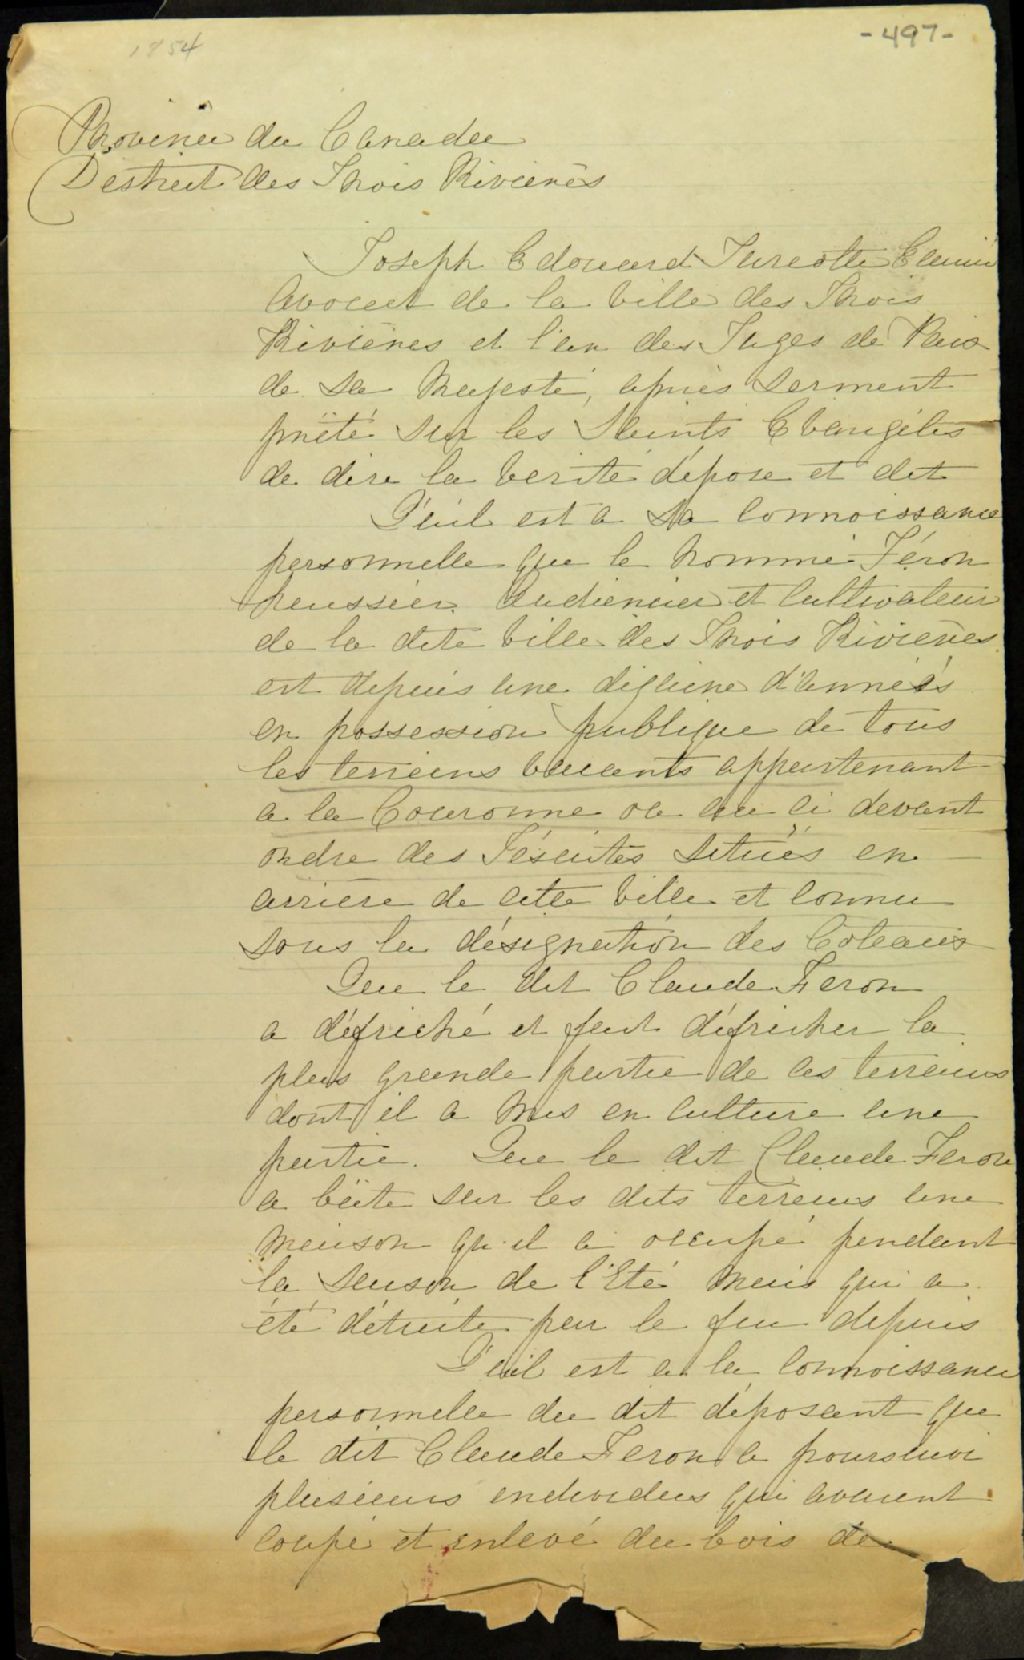 1854
-497-
Province du Canada
District des Trois Rivières
Joseph Edouard Turcotte Ecuier
Avocat de la Ville des Trois
Rivières et l'un des Juges de Paix
de Sa Majesté, après serment
prêté sur les Saints Evangiles
de dire la Verité dépose et dit
Qu'il est a sa connoissance
personnelle que le nommé Féron
heussier audiencier et Cultivateur
de la dite Ville des Trois Rivières
est depuis une dizaine d'années
en possession publique de tous
les terrains vacants appartenant
a la Couronne ou au ci devant
ordre des Jésuites situés en
arriere de cette Ville et connu
sous la désignation des Coteaux
Que le dit Claude Feron
a défriché et fait défricher la
plus grande partie de ces terrains
dont il a mis en culture une
partie. Que le dit Claude Feron
a bâte sur les dits terrains une
maison qu'il a occupé pendant
la saison de l'Eté mais qui a
été détruite par le feu depuis
Qu'il est a la connoissance
personnelle du dit déposant que
le dit Claude Feron a poursuivi
plusieurs individus qui avaient
coupé et enlevé du bois de